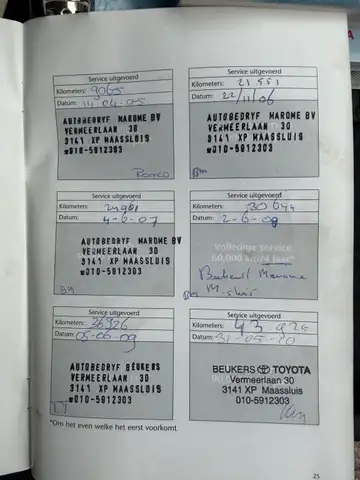 Service uitgevoerd
Kilometers: 9065
Datum: 14-04-05
AUTOBEDRYF MAROME BV
VERMEERLAAN 30
3141 XP MAASSLUIS
☎010-5912303
Romco
Service uitgevoerd
Kilometers: 21551
Datum: 22/11/06
AUTOBEDRYF MAROME BV
VERMEERLAAN 30
3141 XP MAASSLUIS
☎010-5912303
Service uitgevoerd
Kilometers: 24961
Datum: 4-6-07
AUTOBEDRYF MAROME BV
VERMEERLAAN 30
3141 XP MAASSLUIS
☎010-5912303
Service uitgevoerd
Kilometers: 30644
Datum: 2-6-09
Volledige service
60.000 km/4 jaar*
Beukers/Marome
M-sluis
Service uitgevoerd
Kilometers: 36926
Datum: 05-06-09
AUTOBEDRYF BEUKERS
VERMEERLAAN 30
3141 XP MAASSLUIS
☎010-5912303
Service uitgevoerd
Kilometers: 43
Datum: 31-05-
BEUKERS TOYOTA
Vermeerlaan 30
3141 XP Maassluis
010-5912303
*Om het even welke het eerst voorkomt
25